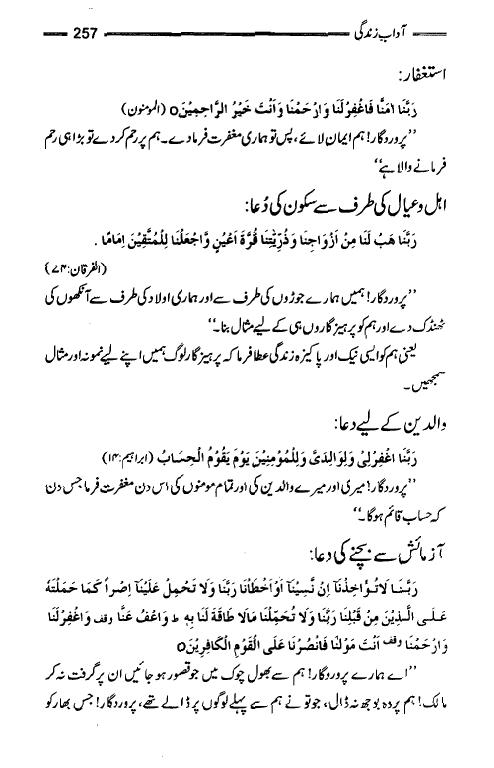 آدابِ زندگی 257
استغفار:
رَبَّنَا اٰمَنَّا فَاغْفِرْلَنَا وَارْحَمْنَا وَاَنْتَ خَيْرُ الرَّاحِمِيْنَ۝ (المومنون)
’’پروردگار! ہم ایمان لائے، پس تو ہماری مغفرت فرمادے۔ ہم پر رحم کر دے تو بڑا ہی رحم
فرمانے والا ہے‘‘
اہل وعیال کی طرف سے سکون کی دُعا:
رَبَّنَا هَبْ لَنَا مِنْ اَزْوَاجِنَا وَذُرِّيّٰتِنَا قُرَّةَ اَعْيُنٍ وَّاجْعَلْنَا لِلْمُتَّقِيْنَ اِمَامًا ۔
(الفرقان:۷۴)
’’پروردگار! ہمیں ہمارے جوڑوں کی طرف سے اور ہماری اولاد کی طرف سے آنکھوں کی
ٹھنڈک دے اور ہم کو پرہیزگاروں ہی کے لیے مثال بنا۔‘‘
یعنی ہم کو ایسی نیک اور پاکیزہ زندگی عطا فرما کہ پرہیزگار لوگ ہمیں اپنے لیے نمونہ اور مثال
سمجھیں۔
والدین کے لیے دعا:
رَبَّنَا اغْفِرْلِیْ وَلِوَالِدَیَّ وَلِلْمُؤْمِنِيْنَ يَوْمَ يَقُوْمُ الْحِسَابُ (ابراہیم:۱۴)
’’پروردگار! میری اور میرے والدین کی اور تمام مومنوں کی اس دن مغفرت فرما جس دن
کہ حساب قائم ہوگا۔‘‘
آزمائش سے بچنے کی دعا:
رَبَّنَا لَا تُؤَاخِذْنَآ اِنْ نَّسِيْنَآ اَوْ اَخْطَاْنَا رَبَّنَا وَلَا تَحْمِلْ عَلَيْنَآ اِصْراً كَمَا حَمَلْتَهٗ
عَلَى الَّذِيْنَ مِنْ قَبْلِنَا رَبَّنَا وَلَا تُحَمِّلْنَا مَالَا طَاقَةَ لَنَا بِهٖ ط وَاعْفُ عَنَّا وقف وَاغْفِرْلَنَا
وَارْحَمْنَا وقف اَنْتَ مَوْلٰنَا فَانْصُرْنَا عَلَى الْقَوْمِ الْكَافِرِيْنَ۝
’’اے ہمارے پروردگار! ہم سے بھول چوک میں جو قصور ہو جائیں ان پر گرفت نہ کر
مالک! ہم پر وہ بوجھ نہ ڈال، جو تو نے ہم سے پہلے لوگوں پر ڈالے تھے، پروردگار! جس بھار کو